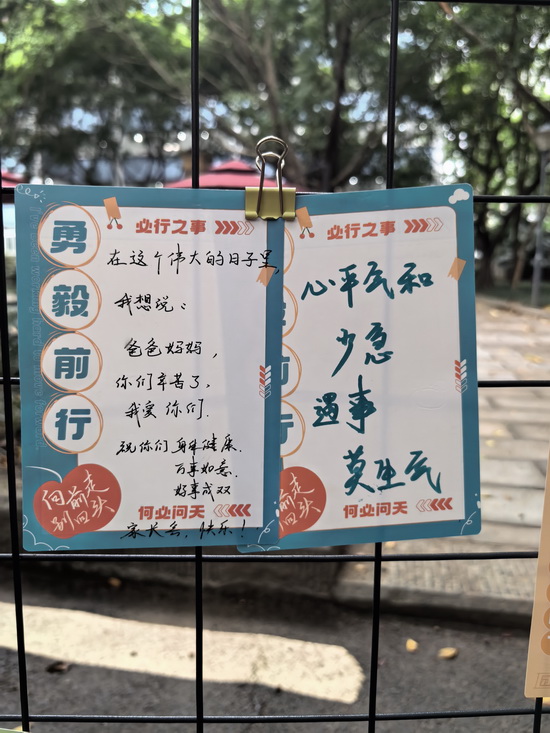 勇毅前行
必行之事
在这个伟大的日子里,
我想说:
爸爸妈妈,
你们辛苦了,
我爱你们.
祝你们身体健康.
万事如意.
好事成双
家长会, 快乐!
向前走
别回头
何必问天
必行之事
心平气和
少急
遇事
莫生气
前走
回头
何必问天